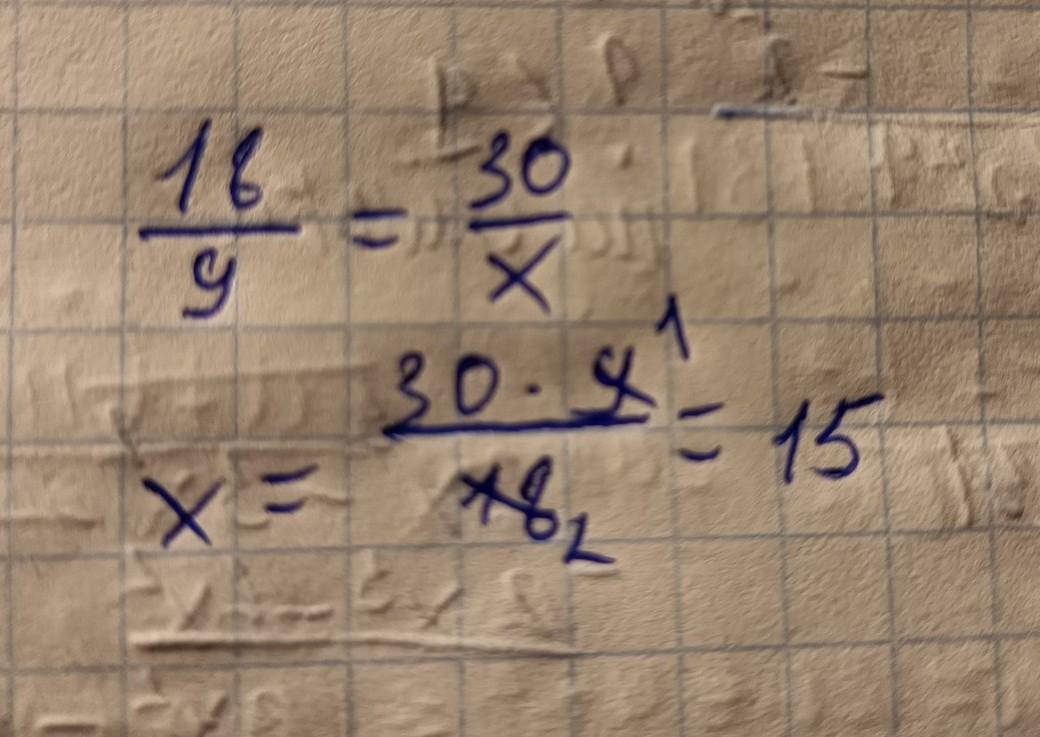 18/9 = 30/x
x = 30 · 9¹/18₂ = 15